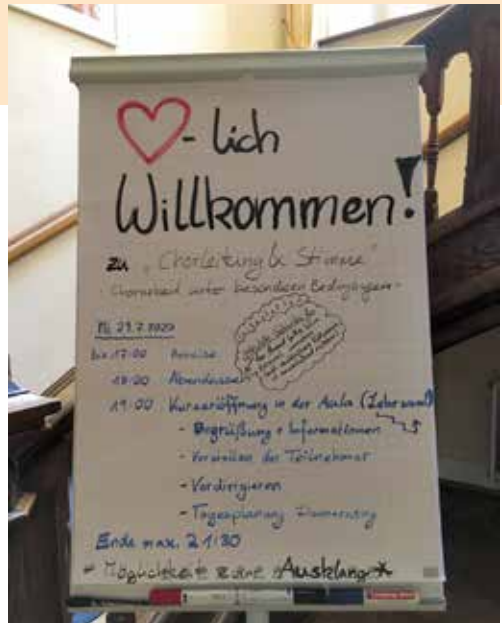 ♥-lich
Willkommen!
zu "Chorleitung & Stimme"
- Chorarbeit unter besonderen Bedingungen -
Mi 29.7.2020
bis 17:00 Anreise
18:00 Abendessen
19:00 Kurseröffnung in der Aula (Lehrsaal)
- Begrüßung + Informationen
- Vorstellen der Teilnehmer
- Vordirigieren
- Tagesplanung Donnerstag
Ende max. 21:30
* Möglichkeit "Ausklang" *